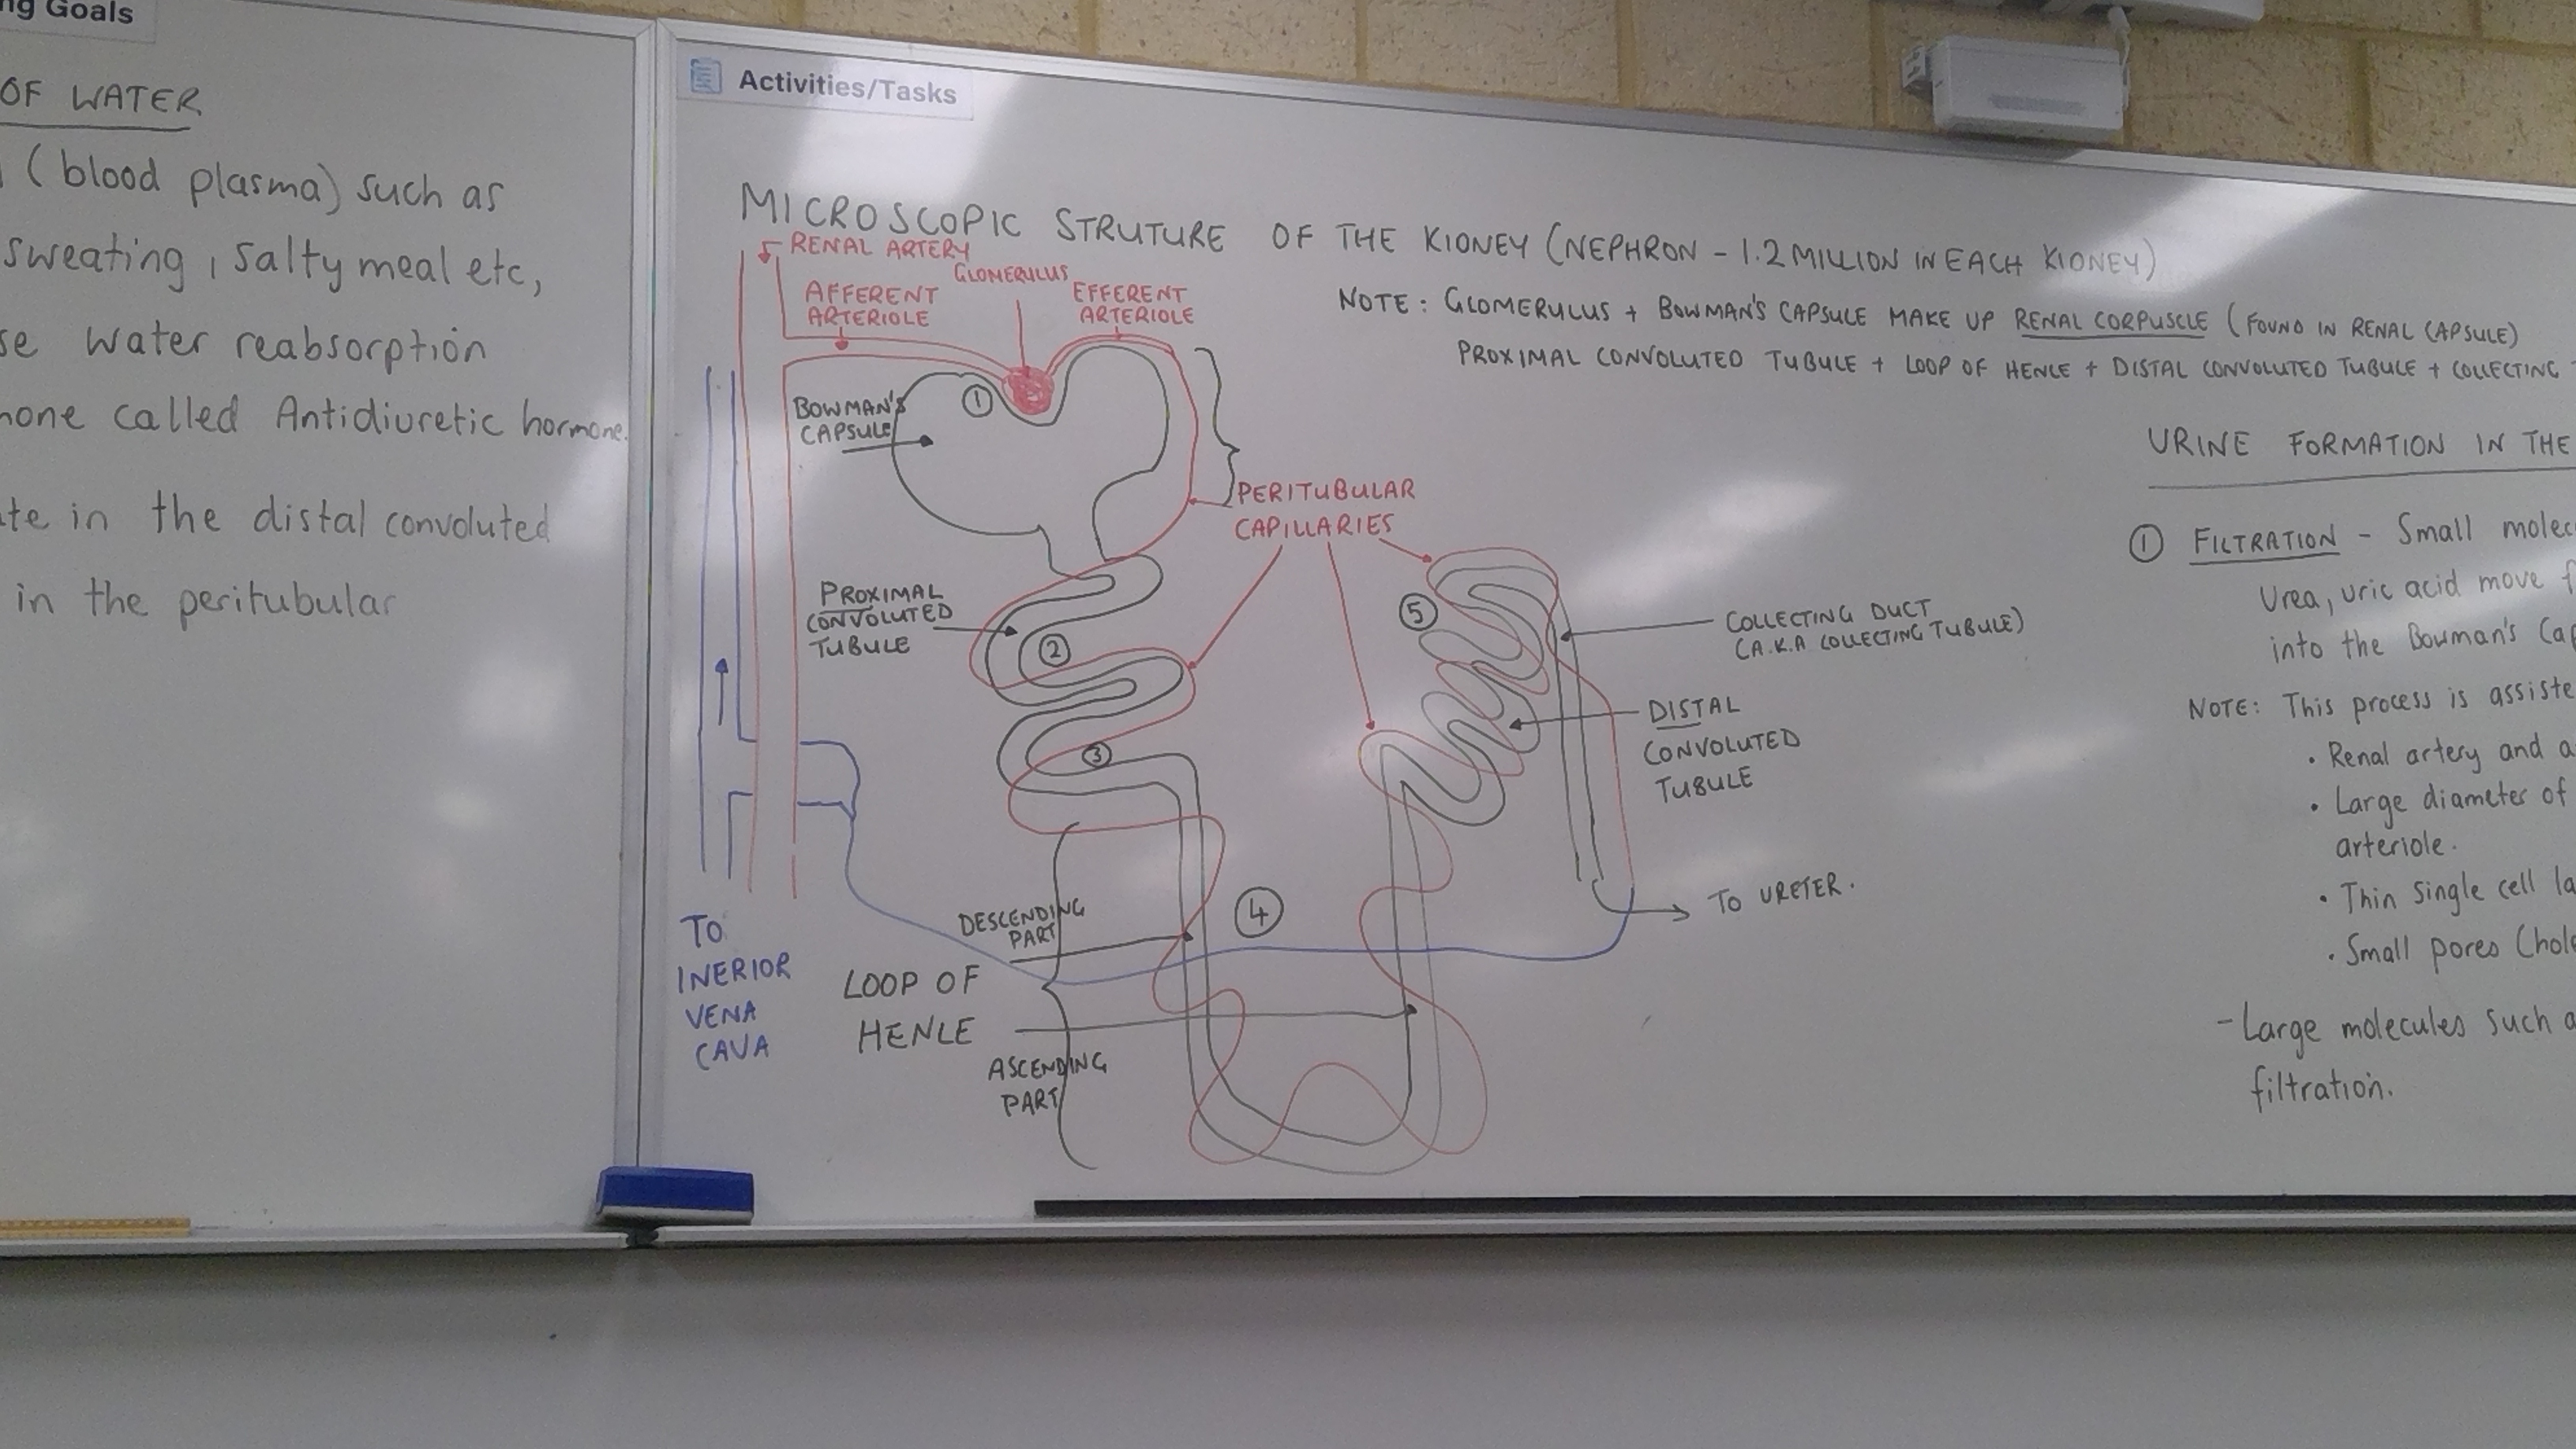 ng Goals
OF WATER
(blood plasma) such as
sweating, salty meal etc,
se water reabsorption
mone called Antidiuretic hormone.
te in the distal convoluted
in the peritubular
Activities/Tasks
MICROSCOPIC STRUTURE OF THE KIDNEY (NEPHRON - 1.2 MILLION IN EACH KIDNEY)
RENAL ARTERY
GLOMERULUS
AFFERENT
ARTERIOLE
EFFERENT
ARTERIOLE
NOTE: GLOMERULUS + BOWMAN'S CAPSULE MAKE UP RENAL CORPUSCLE (FOUND IN RENAL CAPSULE)
PROXIMAL CONVOLUTED TUBULE + LOOP OF HENLE + DISTAL CONVOLUTED TUBULE + COLLECTING
1
BOWMAN'S
CAPSULE
PERITUBULAR
CAPILLARIES
PROXIMAL
CONVOLUTED
TUBULE
2
3
5
COLLECTING DUCT
(A.K.A COLLECTING TUBULE)
DISTAL
CONVOLUTED
TUBULE
4
TO URETER.
DESCENDING
PART
LOOP OF
HENLE
ASCENDING
PART
TO
INERIOR
VENA
CAVA
URINE FORMATION IN THE
1 FILTRATION - Small molec
Urea, uric acid move f
into the Bowman's Cap
NOTE: This process is assiste
• Renal artery and a
• Large diameter of
arteriole.
• Thin single cell la
• Small pores (hole
- Large molecules such a
filtration.